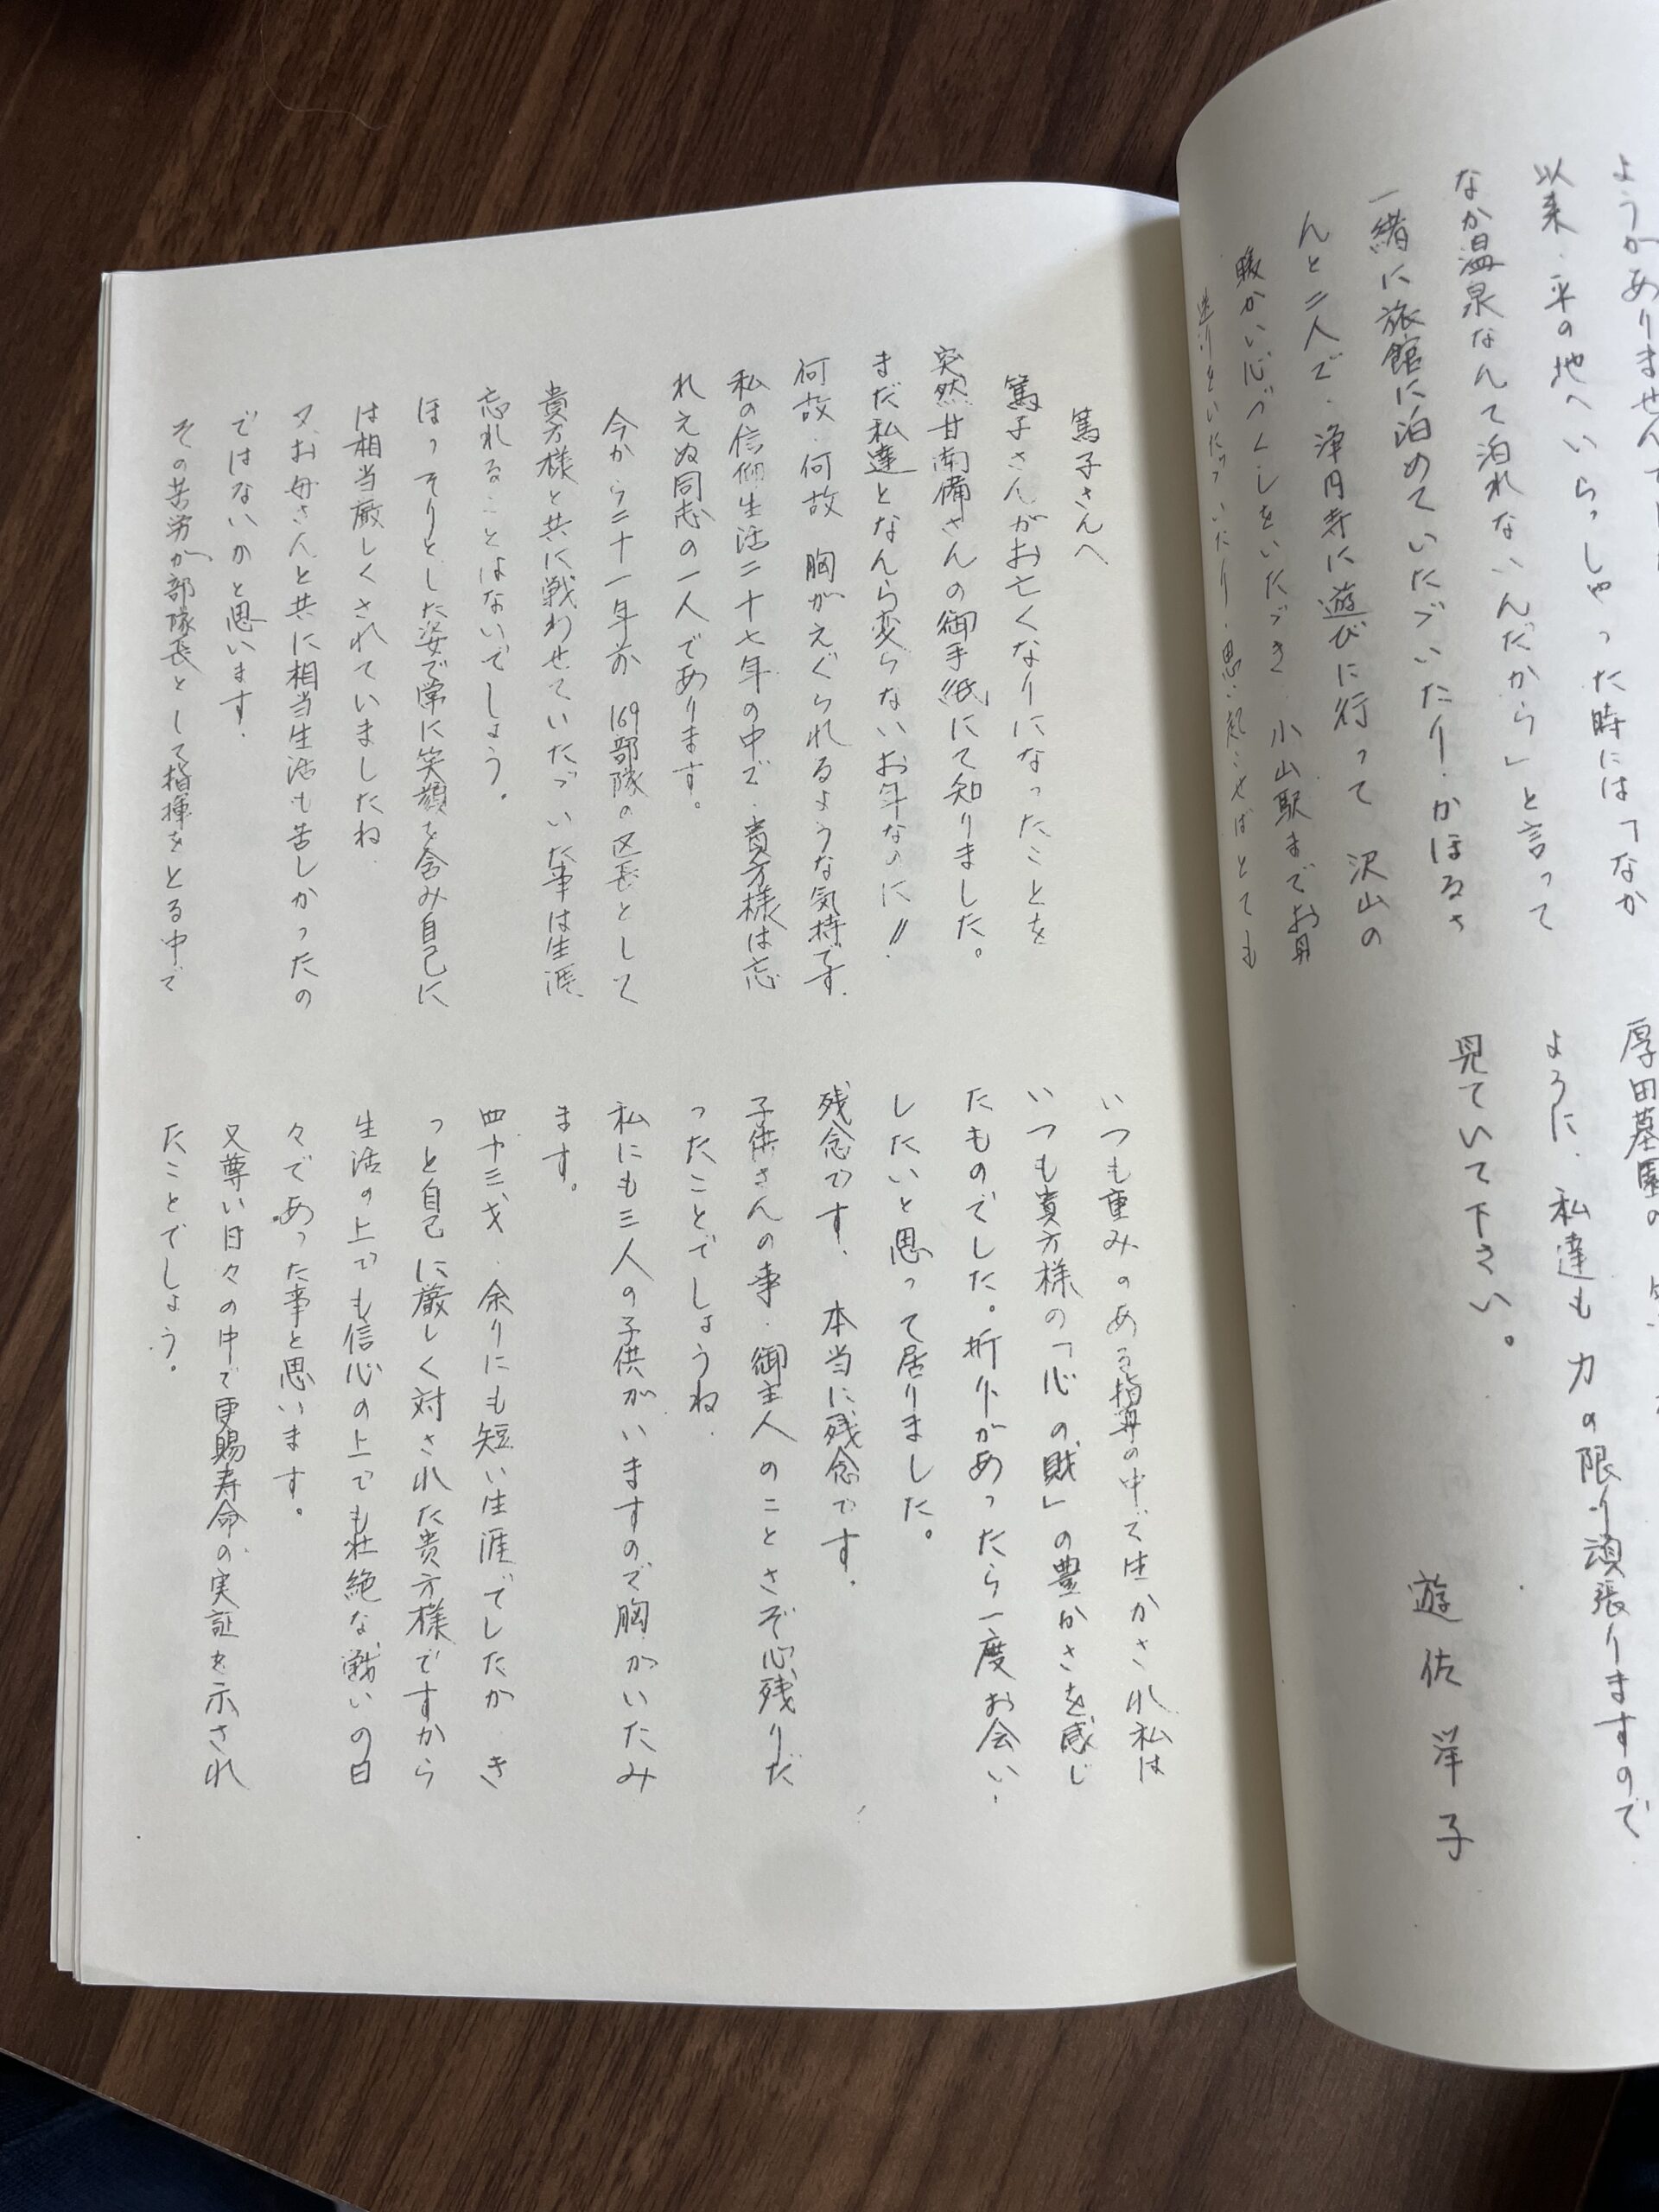 ようがありません
以来、平の地へいらっしゃった時には「なか
なか温泉なんて泊れないんだから」と言って
一緒に旅館に泊めていただいたり、かほるさ
んと二人で、浄円寺に遊びに行って 沢山の
暖かい心づくしをいただき、小山駅までお見
送りをいただいたり、思い起こせばとても
厚田墓園の
ように、私達も力の限り頑張りますので
見ていて下さい。
遊佐 洋子
篤子さんへ
篤子さんがお亡くなりになったことを
突然甘南備さんの御手紙にて知りました。
まだ私達となんら変らないお年なのに!!
何故、何故 胸がえぐられるような気持です。
私の信仰生活二十七年の中で、貴方様は忘
れえぬ同志の一人であります。
今から二十一年前 169部隊の区長として
貴方様と共に戦わせていたゞいた事は生涯
忘れることはないでしょう。
ほっそりとした姿で常に笑顔を含み自己に
は相当厳しくされていましたね。
又、お母さんと共に相当生活も苦しかったの
ではないかと思います。
その苦労が部隊長として指揮をとる中で
いつも重みのある指導の中で生かされ私は
いつも貴方様の「心の財」の豊かさを感じ
たものでした。折りがあったら一度お会い
したいと思って居りました。
残念です、本当に残念です。
子供さんの事、御主人のことさぞ心残りだ
ったことでしょうね。
私にも三人の子供がいますので胸がいたみ
ます。
四十三才、余りにも短い生涯でしたが き
っと自己に厳しく対された貴方様ですから
生活の上でも信心の上でも壮絶な戦いの日
々であった事と思います。
又尊い日々の中で更賜寿命の実証を示され
たことでしょう。